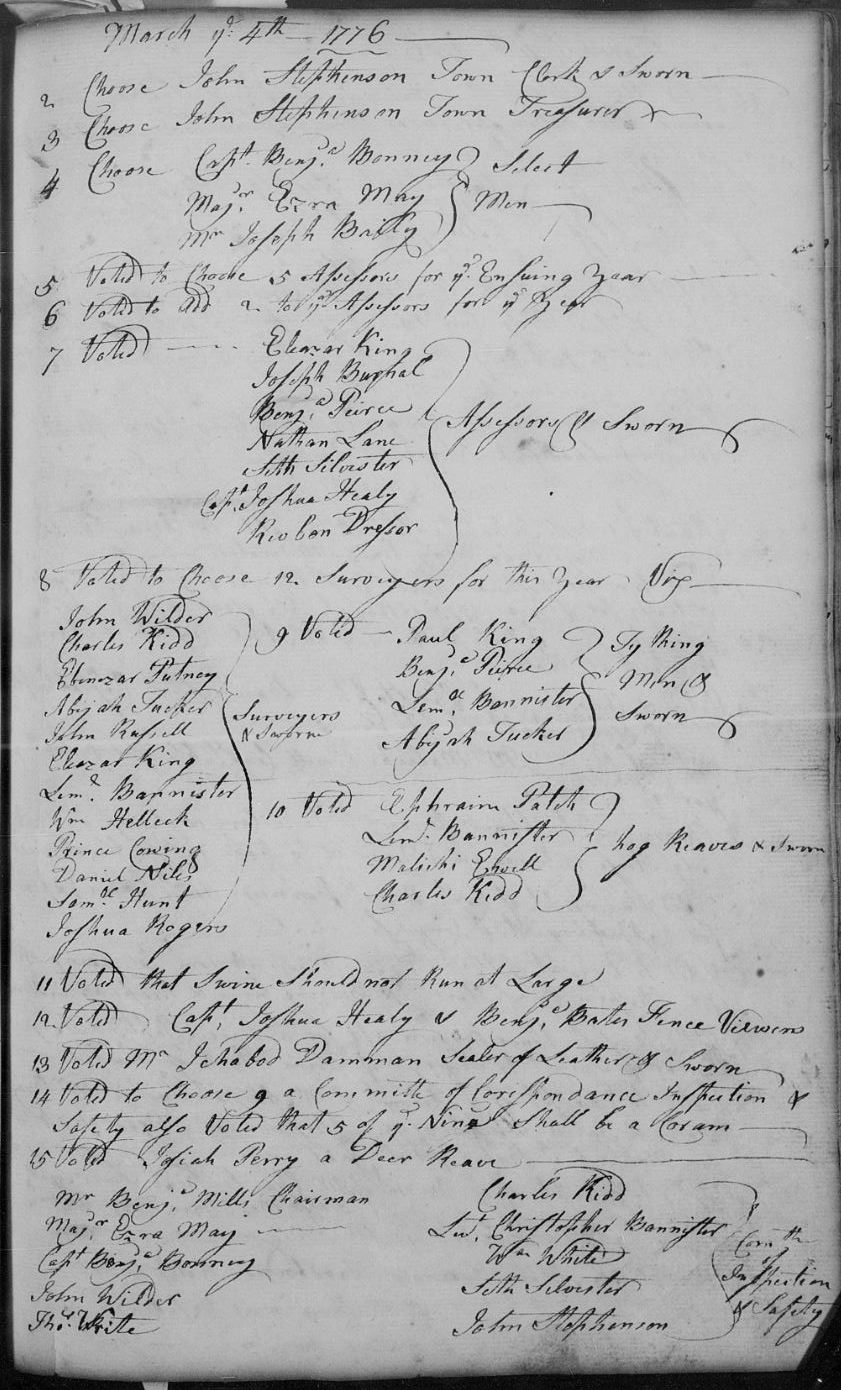 March ye. 4th 1776
2 Choose John Stephenson Town Clerk & Sworn
3 Choose John Stephenson Town Treasurer
4 Choose Capt. Benja. Bonney Select
Majr. Ezra May Men
Mr Joseph Baily
5 Voted to Choose 5 Assessors for ye. Ensuing Year
6 Voted to add 2 to ye. Assessors for ye Year
7 Voted Eleazar King
Joseph Burnal
Benja. Peirce
Nathan Lane Assessors & Sworn
Seth Silvester
Capt. Joshua Healy
Reuben Dressor
8 Voted to Choose 12 Surveyers for this Year Viz
John Wilder
Charles Kidd
Ebenezar Putney
Abijah Tucker
John Russell
Eleazar King
Lemll. Bannister
Wm Helleck
Prince Cowing
Daniel Niles
Samll Hunt
Joshua Rogers
Surveyers
& Sworn
9 Voted Paul King
Benja. Peirce
Lemll. Bannister
Abijah Tucker
Ty thing
Men &
Sworn
10 Voted Ephraim Patch
Lemll. Bannister
Malichi Ewell
Charles Kidd
hog Reaves & Sworn
11 Voted that Swine Should not Run at Large
12 Voted Capt. Joshua Healy & Benja. Bates Fence Viewers
13 Voted Mr Ichabod Damman Sealer of Leather & Sworn
14 Voted to Choose 9 a Committe of Corespondance Inspection &
Safety also Voted that 5 of ye. Nine Shall be a Coram
15 Voted Josiah Perry a Deer Reave
Mr Benja. Mills Chairman
Majr. Ezra May
Capt Benja. Bonney
John Wilder
Thos. White
Charles Kidd
Lewt. Christopher Bannister
Wm White
Seth Silvester
John Stephenson
Comtte
of
Inspection
& Safety